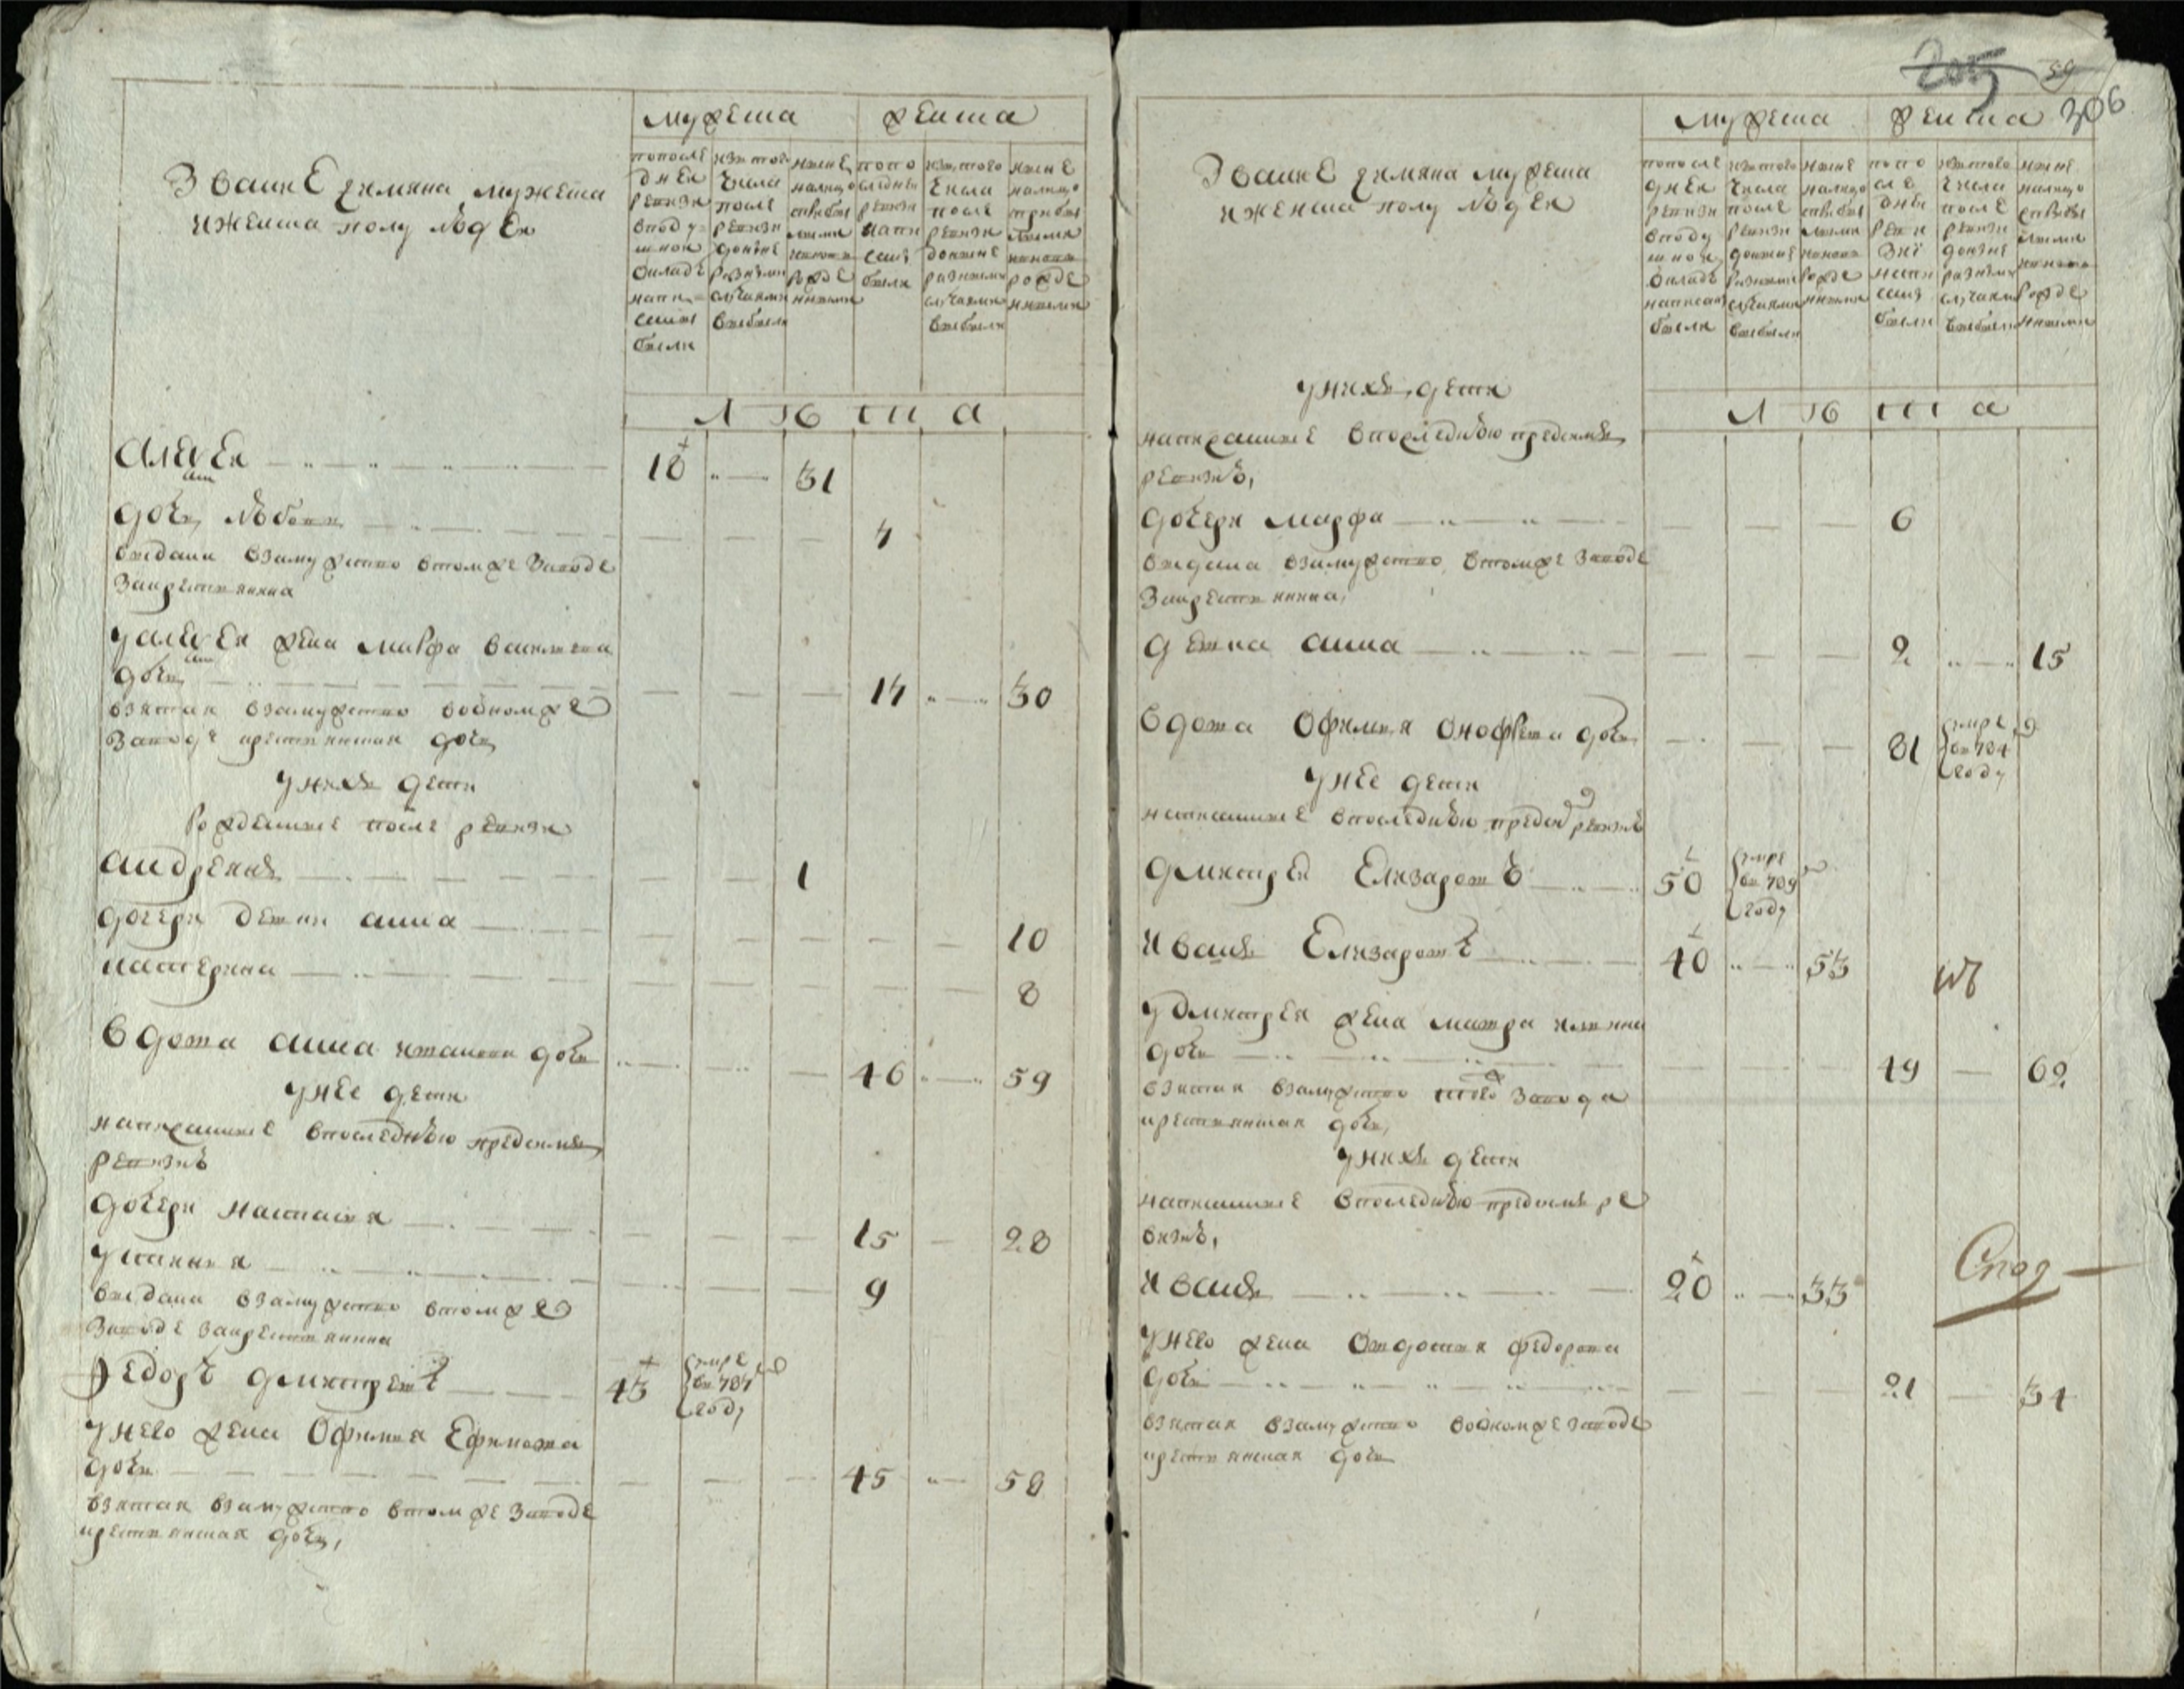 Звание и имяна мужеска
и женска полу людей
мужеска
женска
по последней ревизи в подушной окладе написаны были
из того числа после ревизи до ныне разными случаями выбыли
ныне на лицо с прибылыми и вновь рожденными
по последней ревизи написаны были
из того числа после ревизи до ныне разными случаями выбыли
ныне на лицо с прибылыми и вновь рожденными
лѣта
Алексей 18 31
дочь Любовь 4
выдана в замужство в том же заводе
за крестьянина
у Алексея жена Марфа
дочь 17 30
взятая в замужство в одном же
заводе крестьянская дочь
у них дети
рожденные после ревизи
Андреянъ 1
дочери девки Анна 10
Катерина 8
вдова Анна Иванова дочь 46 59
у нее дети
написанные в последнюю пред сим
ревизию
дочери Настасья 15 28
Устинья 9
выдана в замужство в том же
заводе за крестьянина
Федоръ Дмитревъ 43 умре в 787 году
у него жена Офимья Ефимова
дочь 45 58
взятая в замужство в том же заводе
крестьянская дочь,
205 59
206
Звание и имяна мужеска
и женска полу людей
мужеска
женска
по последней ревизи в подушной окладе написаны были
из того числа после ревизи до ныне разными случаями выбыли
ныне на лицо с прибылыми и вновь рожденными
по последней ревизи написаны были
из того числа после ревизи до ныне разными случаями выбыли
ныне на лицо с прибылыми и вновь рожденными
лѣта
у них дети
написанные в последнюю пред сим
ревизию,
дочери Марфа 6
выдана в замужство в том же заводе
за крестьянина,
девка Анна 2 15
вдова Офимья Онофрева дочь 81 умре в 784 году
у нее дети
написанные в последнюю пред сим ревизию
Дмитрей Елизаровъ 50 умре в 789 году
Иванъ Елизаровъ 40 53
у Дмитрея жена Мавра
дочь 49 62
взятая в замужство того завода
крестьянская дочь,
у них дети
написанные в последнюю пред сим ре
визию,
Иванъ 20 33
у него жена Овдотья Федорова
дочь 21 34
взятая в замужство в одном же заводе
крестьянская дочь